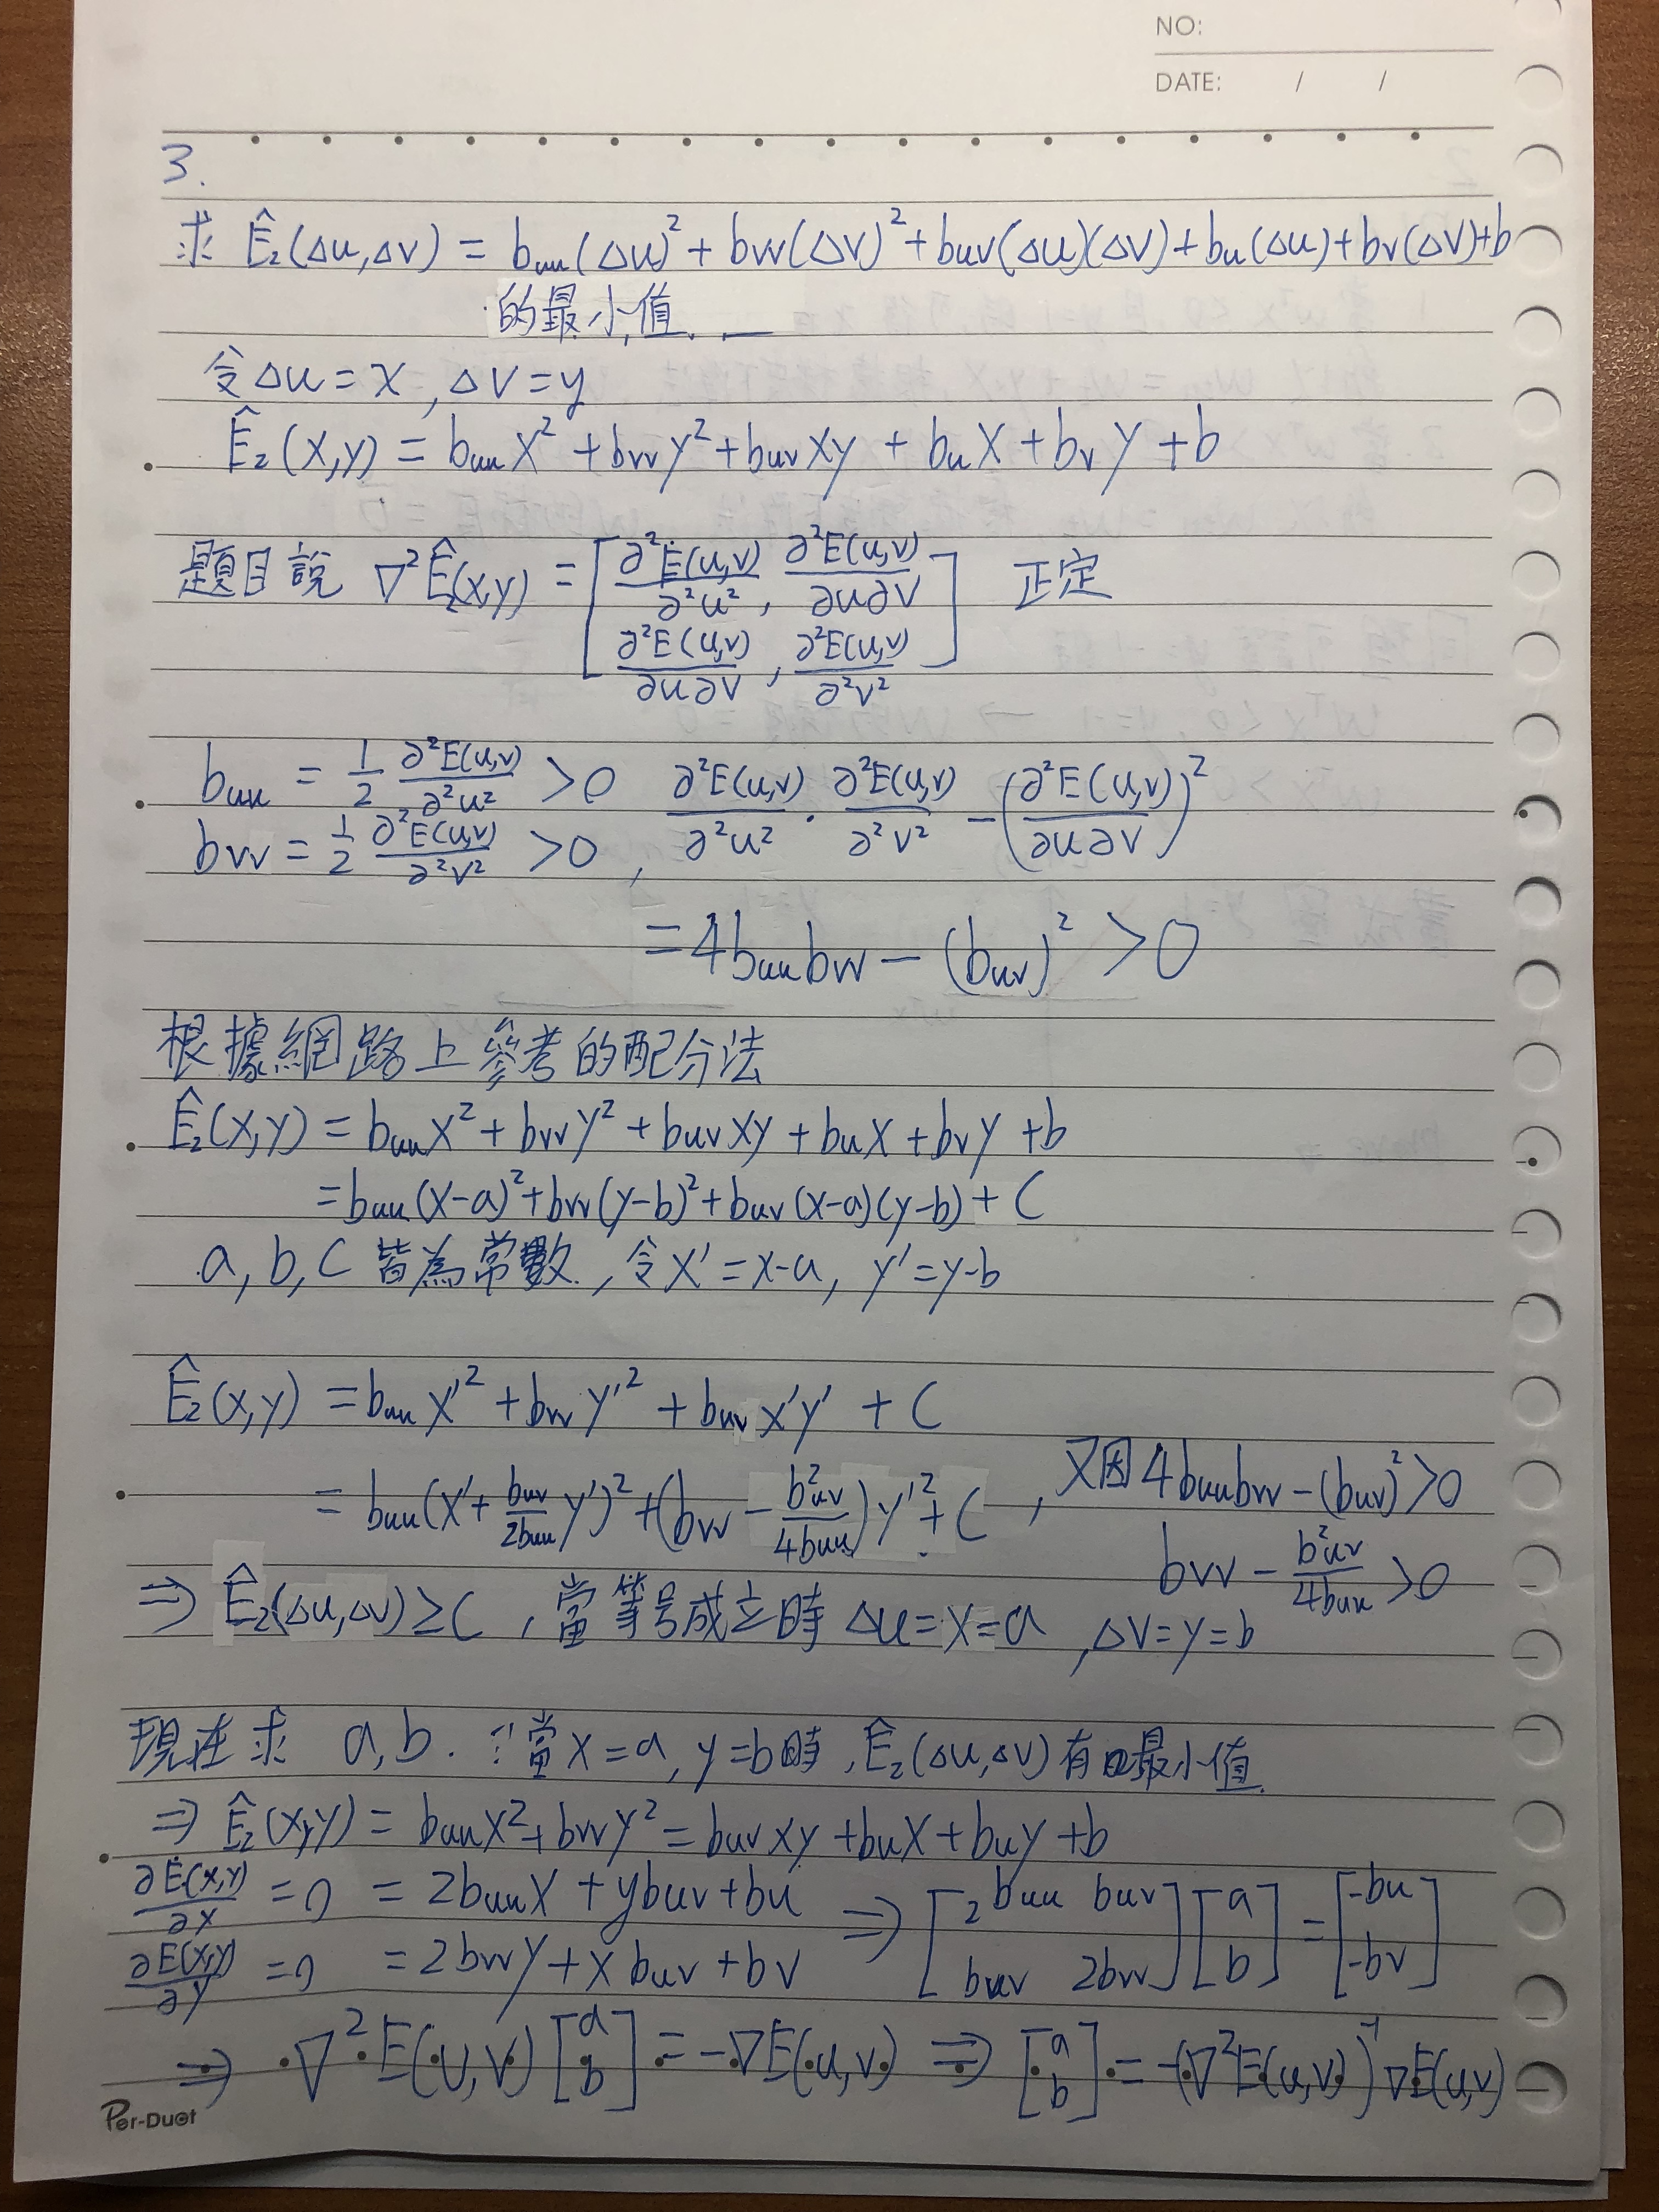 NO:
DATE: / /
3.
求 Ê₂(Δu,Δv) = buu(Δu)² + bvv(Δv)² + buv(Δu)(Δv) + bu(Δu) + bv(Δv) + b
的最小值.
令 Δu = x , Δv = y
Ê₂(x,y) = buu x² + bvv y² + buv xy + bu x + bv y + b
題目說 ∇²Ê₂(x,y) = [ ∂²E(u,v)/∂²u² , ∂²E(u,v)/∂u∂v ; ∂²E(u,v)/∂u∂v , ∂²E(u,v)/∂²v² ] 正定
buu = 1/2 ∂²E(u,v)/∂²u² > 0
bvv = 1/2 ∂²E(u,v)/∂²v² > 0 , ∂²E(u,v)/∂²u² · ∂²E(u,v)/∂²v² − (∂²E(u,v)/∂u∂v)²
= 4buubvv − (buv)² > 0
根據網路上參考的配分法
Ê₂(x,y) = buu x² + bvv y² + buv xy + bu x + bv y + b
= buu(x−a)² + bvv(y−b)² + buv(x−a)(y−b) + C
a, b, C 皆為常數, 令 x' = x−a, y' = y−b
Ê₂(x,y) = buu x'² + bvv y'² + buv x'y' + C
= buu(x' + buv/2buu y')² + (bvv − b²uv/4buu) y'² + C , 又因 4buubvv − (buv)² > 0
bvv − b²uv/4buu > 0
⇒ Ê₂(Δu,Δv) ≥ C , 當等号成立時 Δu = x = a , Δv = y = b
現在求 a,b. ∵當 x = a, y = b 時, Ê₂(Δu,Δv) 有最小值
⇒ Ê₂(x,y) = buu x² + bvv y² = buv xy + bu x + bu y + b
∂E(x,y)/∂x = 0 = 2buu x + y buv + bu
∂E(x,y)/∂y = 0 = 2bvv y + x buv + bv ⇒ [ 2buu buv ; buv 2bvv ] [ a ; b ] = [ -bu ; -bv ]
⇒ ∇²E(u,v) [ a ; b ] = −∇E(u,v) ⇒ [ a ; b ] = −(∇²E(u,v))⁻¹ ∇E(u,v)
Per-Duet